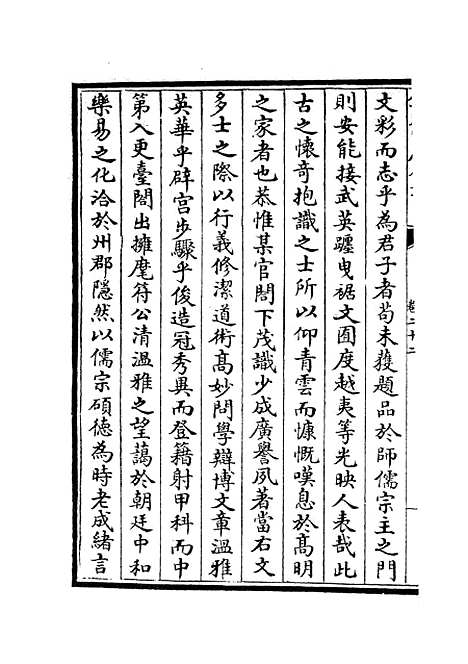 文彩而志乎為君子者苟未獲題品於師儒宗主之門
則安能接武英躔曳裾文囿度越夷等光映人表哉此
古之懷奇抱識之士所以仰青雲而慷慨嘆息於髙明
之家者也恭惟某官閤下茂識少成廣譽夙著當右文
多士之際以行義修潔道術髙妙問學辯博文章温雅
英華乎辟宫步驟乎俊造冠秀異而登籍射甲科而中
第入更臺閣出擁麾符公清温雅之望藹於朝廷中和
樂易之化洽於州郡隱然以儒宗碩德為時老成緒言
卷二十二